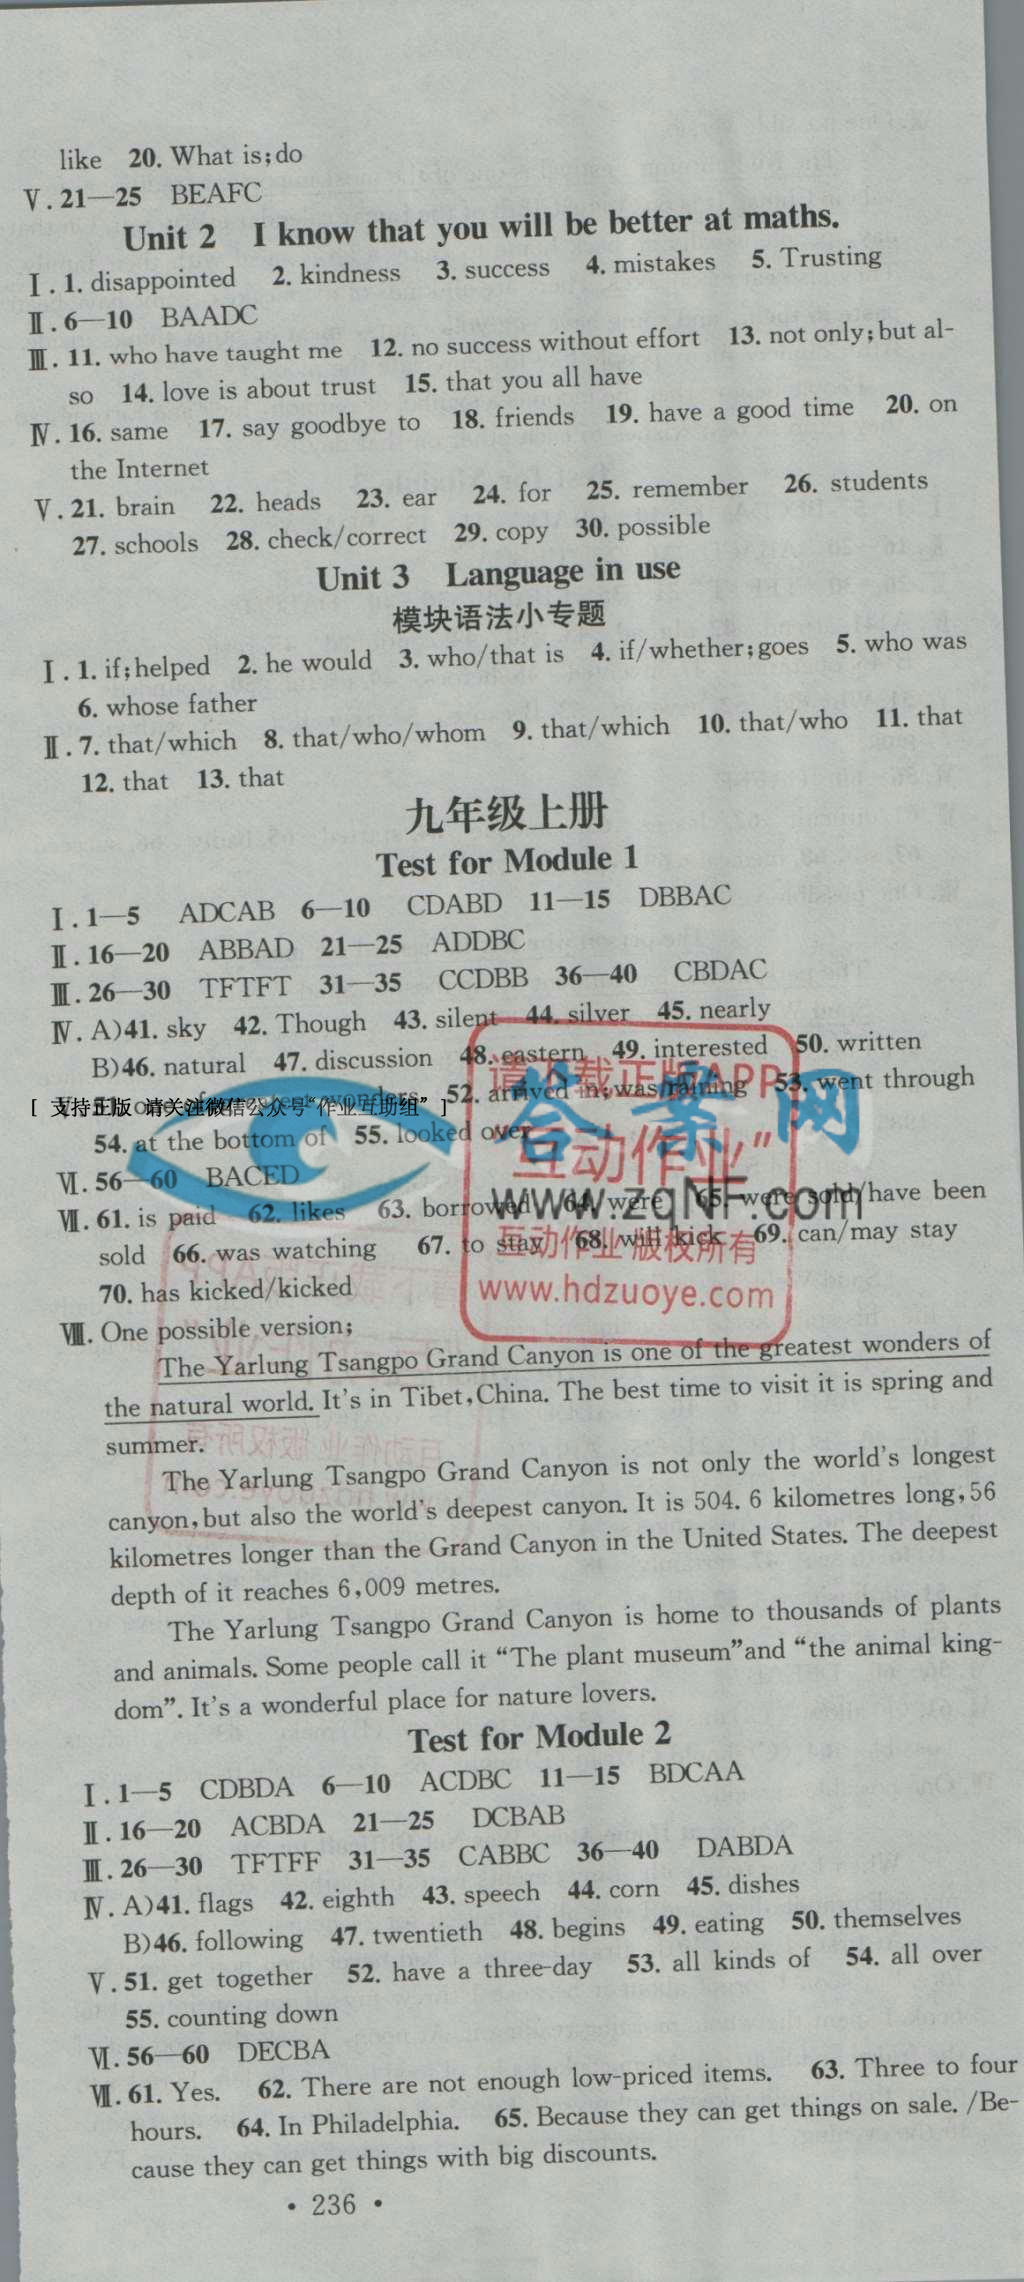 like 20. What is;do
Ⅴ. 21—25 BEAFC
Unit 2 I know that you will be better at maths.
Ⅰ. 1. disappointed 2. kindness 3. success 4. mistakes 5. Trusting
Ⅱ. 6—10 BAADC
Ⅲ. 11. who have taught me 12. no success without effort 13. not only;but al-
so 14. love is about trust 15. that you all have
Ⅳ. 16. same 17. say goodbye to 18. friends 19. have a good time 20. on
the Internet
Ⅴ. 21. brain 22. heads 23. ear 24. for 25. remember 26. students
27. schools 28. check/correct 29. copy 30. possible
Unit 3 Language in use
模块语法小专题
Ⅰ. 1. if;helped 2. he would 3. who/that is 4. if/whether;goes 5. who was
6. whose father
Ⅱ. 7. that/which 8. that/who/whom 9. that/which 10. that/who 11. that
12. that 13. that
九年级上册
Test for Module 1
Ⅰ. 1—5 ADCAB 6—10 CDABD 11—15 DBBAC
Ⅱ. 16—20 ABBAD 21—25 ADDBC
Ⅲ. 26—30 TFTFT 31—35 CCDBB 36—40 CBDAC
Ⅳ. A)41. sky 42. Though 43. silent 44. silver 45. nearly
B)46. natural 47. discussion 48. eastern 49. interested 50. written
wonders 52. arrived in;was raining 53. went through
[ 支持正版 请关注微信公众号“作业互助组” ]
54. at the bottom of 55. looked over
Ⅵ. 56—60 BACED
Ⅶ. 61. is paid 62. likes 63. borrowed 64. were 65. were sold/have been
sold 66. was watching 67. to stay 68. will kick 69. can/may stay
70. has kicked/kicked
请下载正版APP
答案网
“互动作业”
www.zqNF.com
互动作业 版权所有
www.hdzuoye.com
Ⅷ. One possible version;
The Yarlung Tsangpo Grand Canyon is one of the greatest wonders of
the natural world. It's in Tibet,China. The best time to visit it is spring and
summer.
The Yarlung Tsangpo Grand Canyon is not only the world's longest
canyon,but also the world's deepest canyon. It is 504. 6 kilometres long,56
kilometres longer than the Grand Canyon in the United States. The deepest
depth of it reaches 6,009 metres.
The Yarlung Tsangpo Grand Canyon is home to thousands of plants
and animals. Some people call it “The plant museum”and “the animal king-
dom”. It's a wonderful place for nature lovers.
Test for Module 2
Ⅰ. 1—5 CDBDA 6—10 ACDBC 11—15 BDCAA
Ⅱ. 16—20 ACBDA 21—25 DCBAB
Ⅲ. 26—30 TFTFF 31—35 CABBC 36—40 DABDA
Ⅳ. A)41. flags 42. eighth 43. speech 44. corn 45. dishes
B)46. following 47. twentieth 48. begins 49. eating 50. themselves
Ⅴ. 51. get together 52. have a three-day 53. all kinds of 54. all over
55. counting down
Ⅵ. 56—60 DECBA
Ⅶ. 61. Yes. 62. There are not enough low-priced items. 63. Three to four
hours. 64. In Philadelphia. 65. Because they can get things on sale. /Be-
cause they can get things with big discounts.
• 236 •